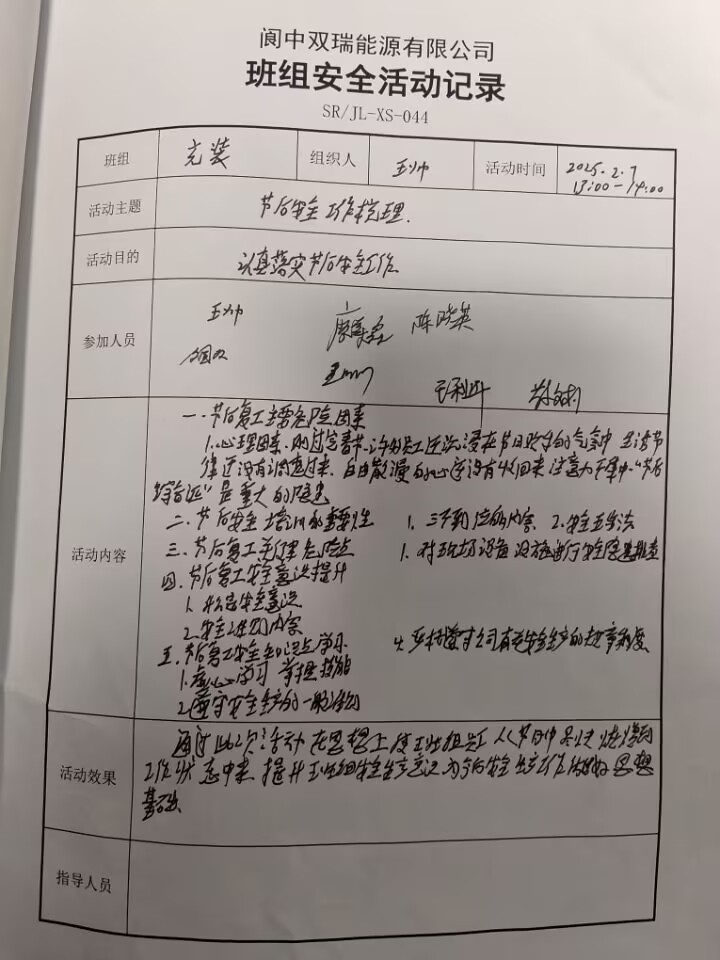 阆中双瑞能源有限公司
班组安全活动记录
SR/JL-XS-044
班组 充装 组织人 王帅 活动时间 2025.2.7
13:00-14:00
活动主题 节后安全工作梳理.
活动目的 认真落实节后安全工作
参加人员 王帅 陈晓英
活动内容
一.节后复工主要危险因素
1.心理因素.刚过完春节.许多员工还沉浸在节日欢乐的气氛中 生活节
律还没有调整过来.自由散漫的心还没有收回来 注意力不集中."节后
综合症"是重大的隐患
二.节后安全培训的重要性 1.三不到位的内容 2.安全五字法
三.节后复工关键危险点 1.对现场设备设施进行安全隐患排查
四.节后复工安全意识提升
1.树立安全意识
2.安全
五.节后复工安全知识点学习 4.公司有关安全生产的规章制度
1.虚心学习 掌握技能
2.遵守安全生产的一般
活动效果
通过此次活动 在思想上使班组员工从节日中尽快
工作状态中来.提升班组安全生产意识 为今后安全生产工作做好思想
基础.
指导人员